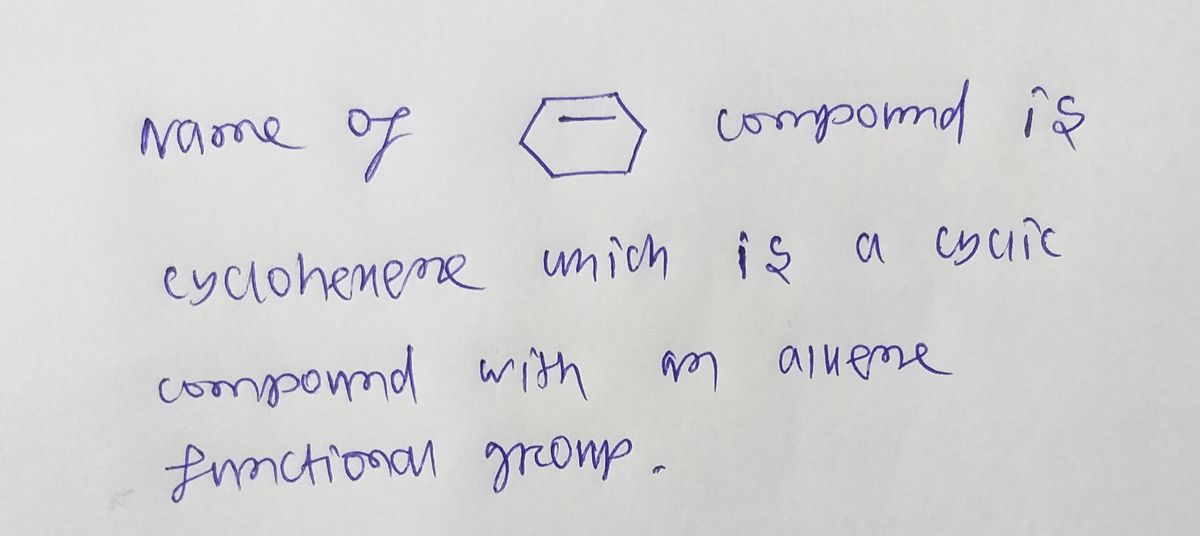 Name of compound is
cyclohexene which is a cyclic
compound with an alkene
functional group.